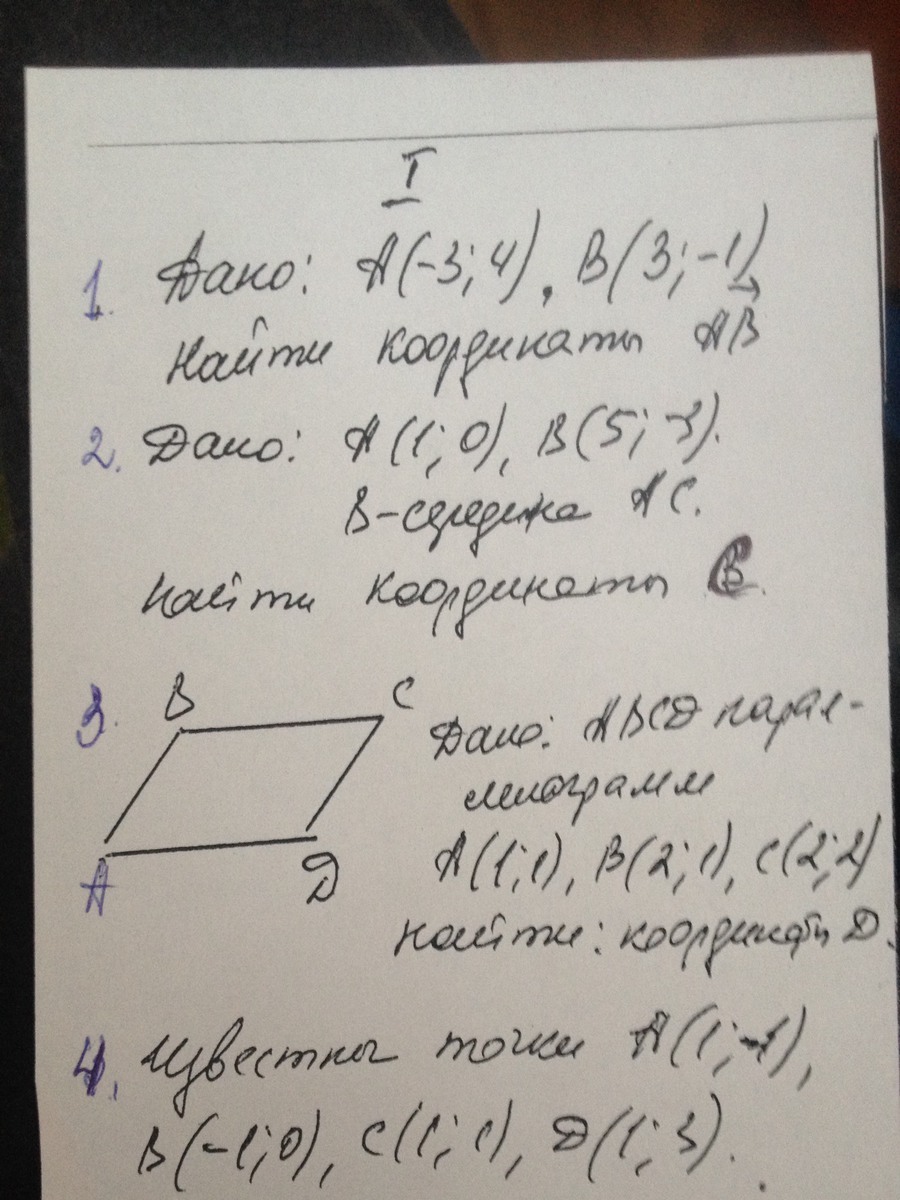 I
1. Дано: A(-3; 4), B(3; -1)
Найти координаты AB
2. Дано: A(1; 0), B(5; -3).
B-середина AC.
Найти координаты C.
3. B C Дано: ABCD парал-
лелограмм
A(1; 1), B(2; 1), C(2; 2)
A D
Найти: координаты D.
4. Известны точки A(1; -1),
B(-1; 0), C(1; 1), D(1; 3).